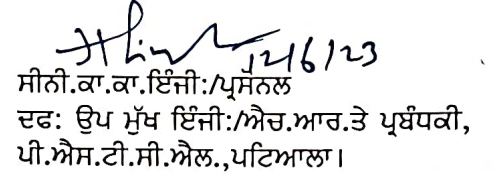 12/6/23
ਸੀਨੀ.ਕਾ.ਕਾ.ਇੰਜੀ:/ਪ੍ਰਸੋਨਲ
ਦਫ: ਉਪ ਮੁੱਖ ਇੰਜੀ:/ਐਚ.ਆਰ.ਤੇ ਪ੍ਰਬੰਧਕੀ,
ਪੀ.ਐਸ.ਟੀ.ਸੀ.ਐਲ.,ਪਟਿਆਲਾ।